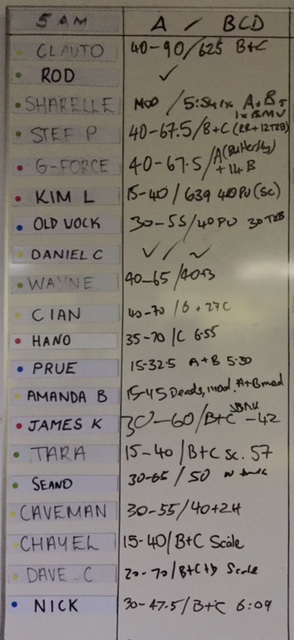 5 AM A / BCD
CLAUTO 40-90/625 B+C
ROD ✓
SHARELLE MOD / A+B,
1xBMU
STEF P 40-67.5/B+C (RR+12TZB)
G-FORCE 40-67.5/A (Butterfly)
+14B
KIM L 15-40/639 40PU (SC)
OLD VOCK 30-55/40PU 30TZB
DANIEL C ✓ / ~
WAYNE 40-65/40+3
CIAN 40-70/B+27C
HANO 35-70/C 6:55
PRUE 15-32.5 A+B 5:30
AMANDA B 15-45 Deads, mod. A+B mod
JAMES K 30-60/B+C -42
TARA 15-40/B+C Sc. 57
SEAND 30-65/50
CAVEMAN 30-55/40+24
CHAYEL 15-40/B+C Scale
DAVE C 20-70/B+C+D Scale
NICK 30-47.5/B+C 6:09